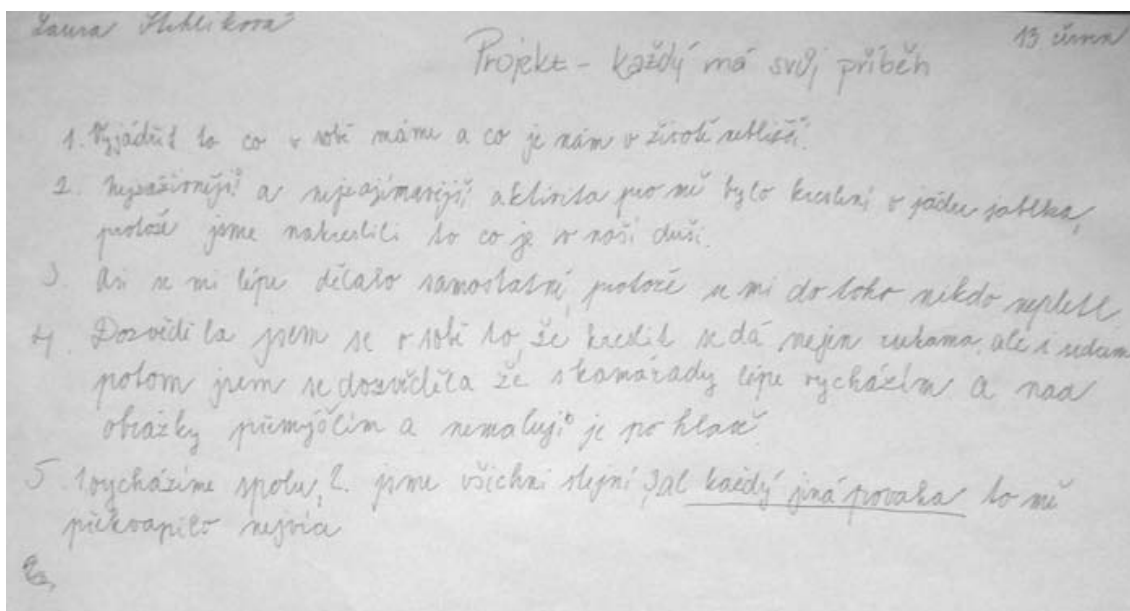 Laura Stehlíková 13 února
Projekt - každý má svůj příběh
1. Vyjádřit to co v sobě máme a co je nám v životě nebližší.
2. Nejzážirnější a nejzajímavější aktivita pro mě bylo kreslení v jádru jablka,
protože jsme nakreslili to co je v naší duši.
3. Asi se mi lépe dělalo samostatně, protože se mi do toho nikdo nepletl.
4. Dozvěděla jsem se o sobě to, že kreslit se dá nejen rukama, ale i srdcem
potom jsem se dozvěděla že s kamarády lépe vycházím a nad
obrázky přemýšlím a nemaluji je po hlavě.
5. 1 vycházíme spolu, 2. jsme všichni stejní, 3 al každý jiná povaha to mě
překvapilo nejvíc